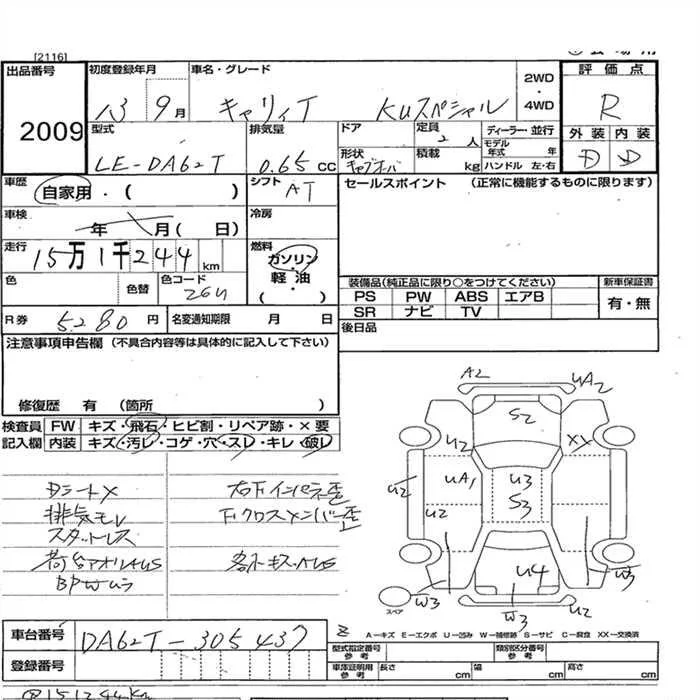 [2116]
出品番号 初度登録年月 車名・グレード 2WD・4WD 評価点
2009 13 9月 キャリィT KUスペシャル R
型式 排気量 ドア 定員 2人 ディーラー・並行 外装 内装
LE-DA62T 0.65 CC 形状 キャブオーバ 積載 kg モデル年式 年 ハンドル 左・右 D D
車歴 自家用・( ) シフト AT セールスポイント (正常に機能するものに限ります)
車検 年 月( 日) 冷房
走行 15万1千244km 燃料 ガソリン 軽・油 ( )
色 色替 色コード 26U 装備品(純正品に限り○をつけてください) 新車保証書
PS PW ABS エアB 有・無
R券 5280円 名変通知期限 月 日 SR ナビ TV
後日品
注意事項申告欄 (不具合内容等は具体的に記入して下さい)
修復歴 有 (箇所 )
検査員 FW キズ・飛石・ヒビ割・リペア跡・×要
記入欄 内装 キズ・汚レ・コゲ・穴・スレ・キレ・破レ
A2 UA2
S2
U2 XX
UA1 U3
U2 S3
U2
U4
W3 W3 W3
スペア
Dシート×
排気モレ 下クロスメンバー歪
スタットレス
車台番号 DA62T-305437
A-キズ E-エクボ U-凹み W-補修跡 S-サビ C-腐食 XX-交換済
登録番号 型式指定番号 参考 類別区分番号 参考
車庫証明用 参考 長さ cm 幅 cm 高さ cm
151244Km